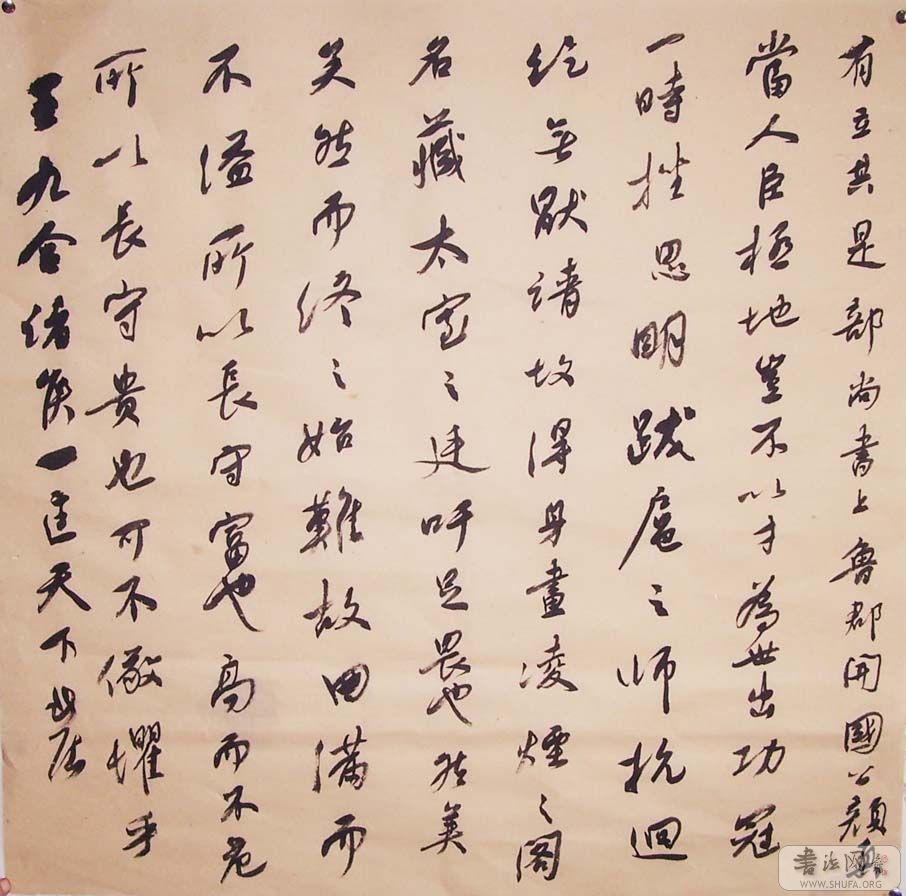 有立共是部尚書上魯郡開國公顏
當人臣極地豈不以才為世出功冠
一時挫思明跋扈之師抗迴
紇無厭請故得身畫凌煙之閣
名藏太室之廷吁足畏也然美
矣然而終之始難故曰滿而
不溢所以長守富也高而不危
所以長守貴也可不儆懼乎
王九合諸侯一匡天下
書法网
WWW.SHUFA.ORG